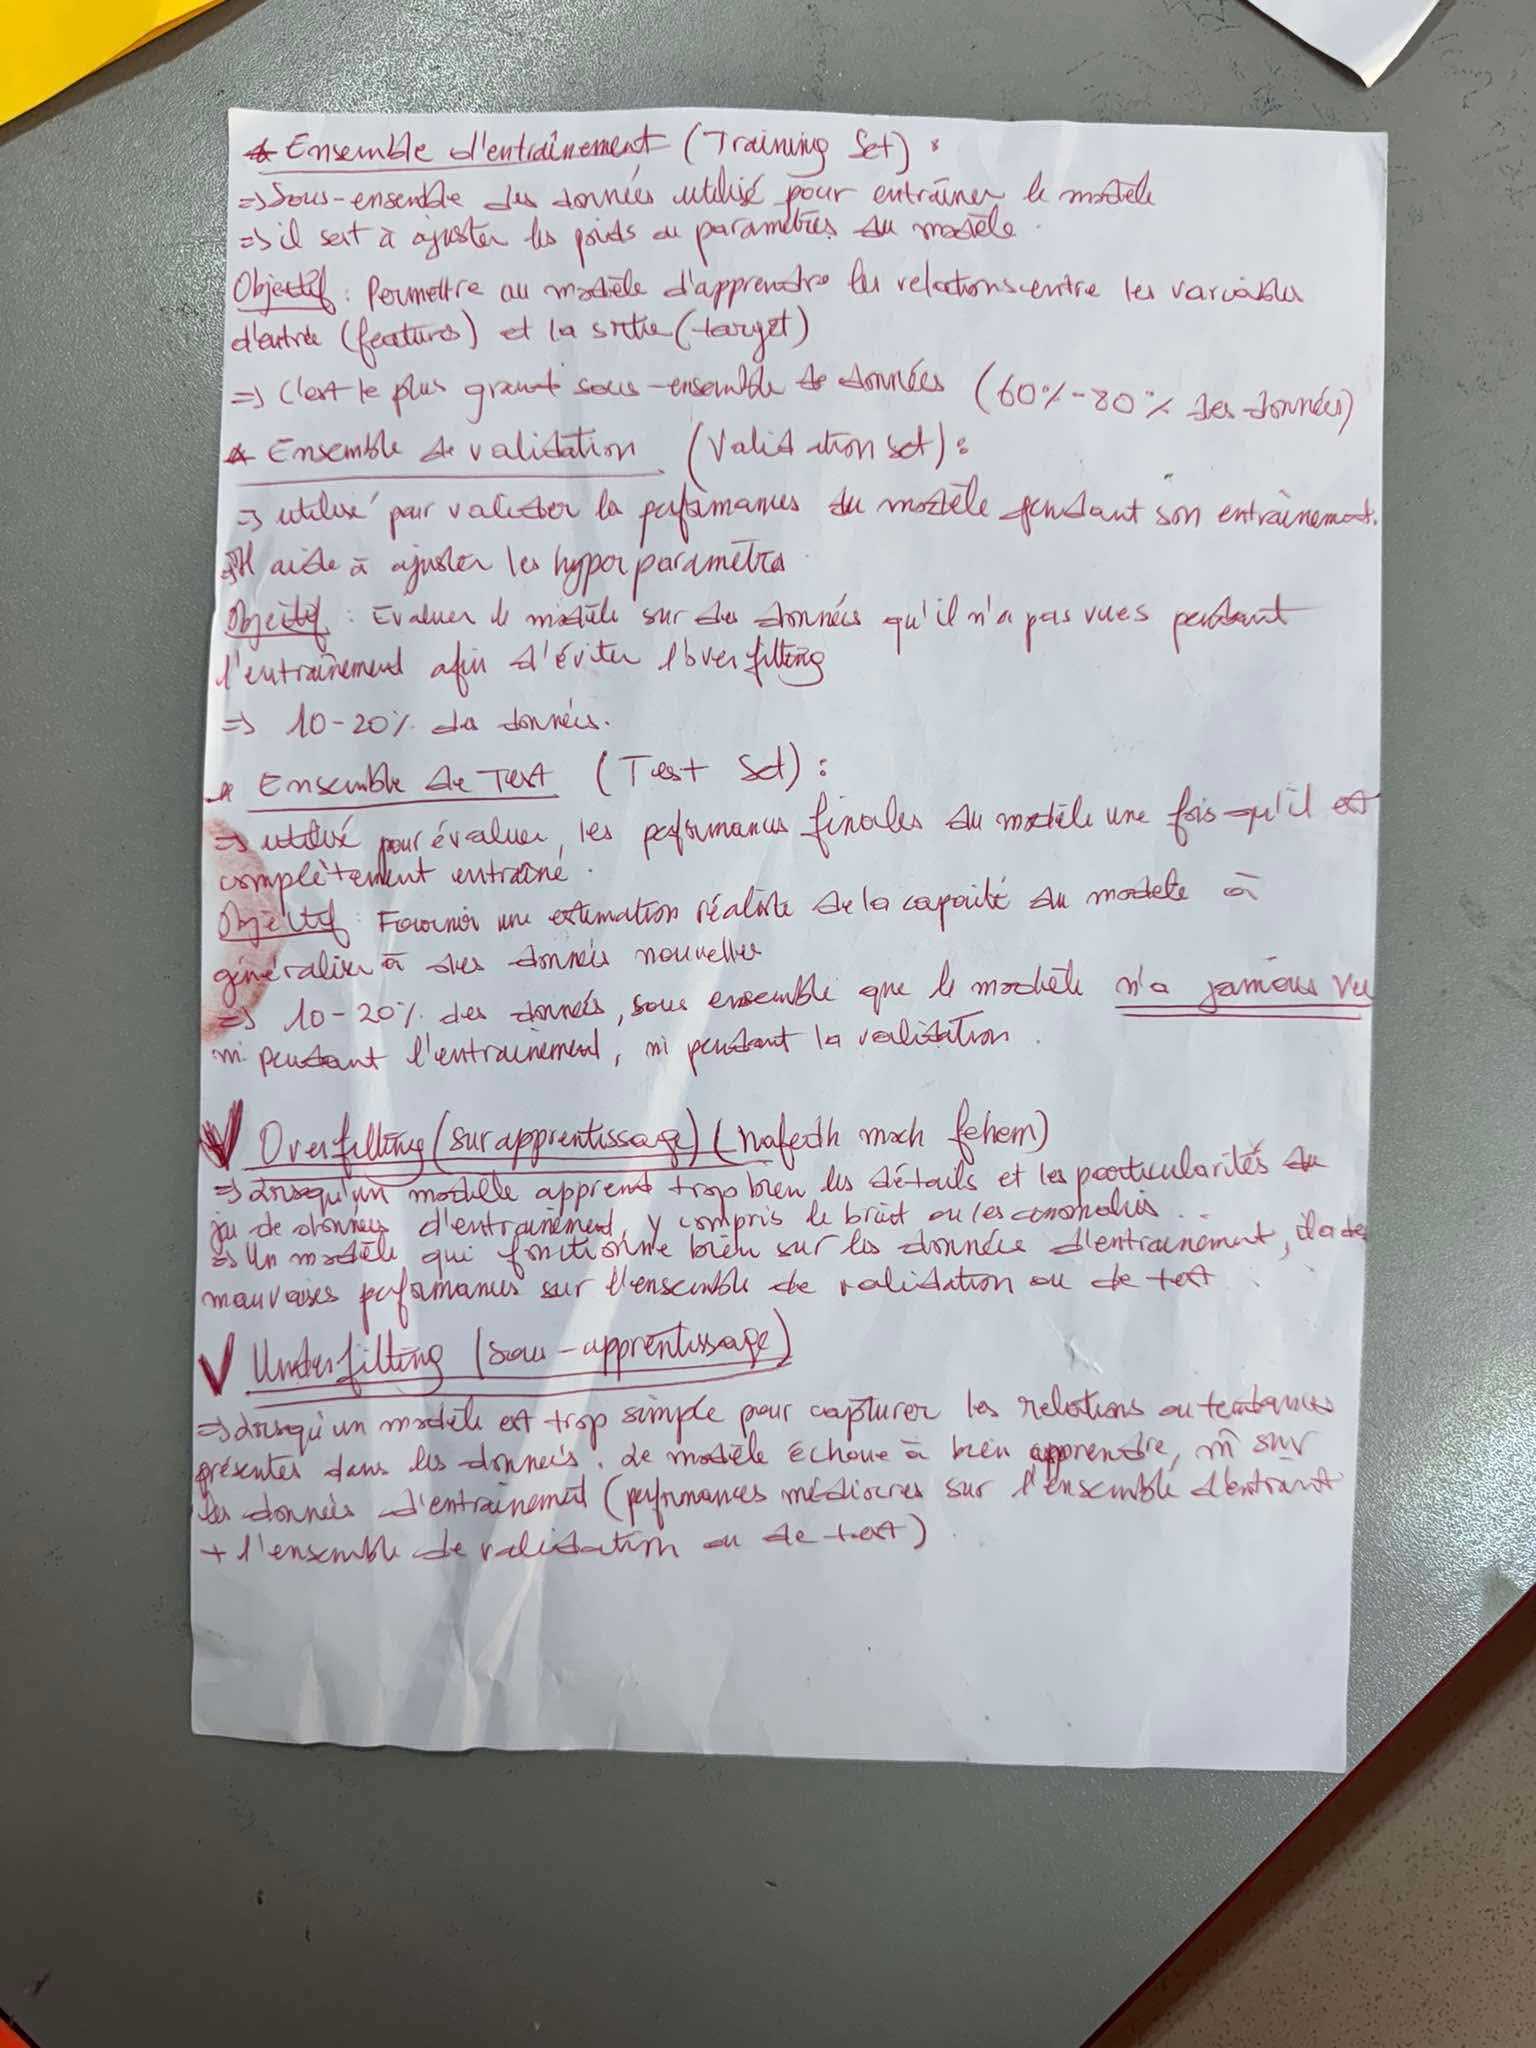 * Ensemble d'entraînement (Training Set) :
=> Sous-ensemble des données utilisé pour entraîner le modèle
=> il sert à ajuster les poids ou paramètres du modèle.
Objectif : Permettre au modèle d'apprendre les relations entre les variables
d'entrée (features) et la sortie (target)
=> C'est le plus grand sous-ensemble de données (60% - 80% des données)
* Ensemble de validation (Validation set) :
=> utilisé pour valider la performances du modèle pendant son entraînement.
=> Il aide à ajuster les hyperparamètres.
Objectif : Evaluer le modèle sur des données qu'il n'a pas vues pendant
l'entraînement afin d'éviter l'overfitting
=> 10-20% des données.
* Ensemble de Test (Test Set) :
=> utilisé pour évaluer, les performances finales du modèle une fois qu'il est
complètement entraîné.
Objectif : Fournir une estimation réaliste de la capacité du modèle à
généraliser à des données nouvelles
=> 10-20% des données, sous ensemble que le modèle n'a jamais vu
ni pendant l'entraînement, ni pendant la validation.
Overfitting (surapprentissage) (hafedh mch fehem)
=> Lorsqu'un modèle apprend trop bien les détails et les particularités du
jeu de données d'entraînement, y compris le bruit ou les anomalies..
=> Un modèle qui fonctionne bien sur les données d'entraînement, il a de
mauvaises performances sur l'ensemble de validation ou de test..
Underfitting (sous-apprentissage)
=> Lorsqu'un modèle est trop simple pour capturer les relations ou tendances
présentes dans les données. Le modèle échoue à bien apprendre, m̂ sur
les données d'entraînement (performances médiocres sur l'ensemble d'entraint
+ l'ensemble de validation ou de test).